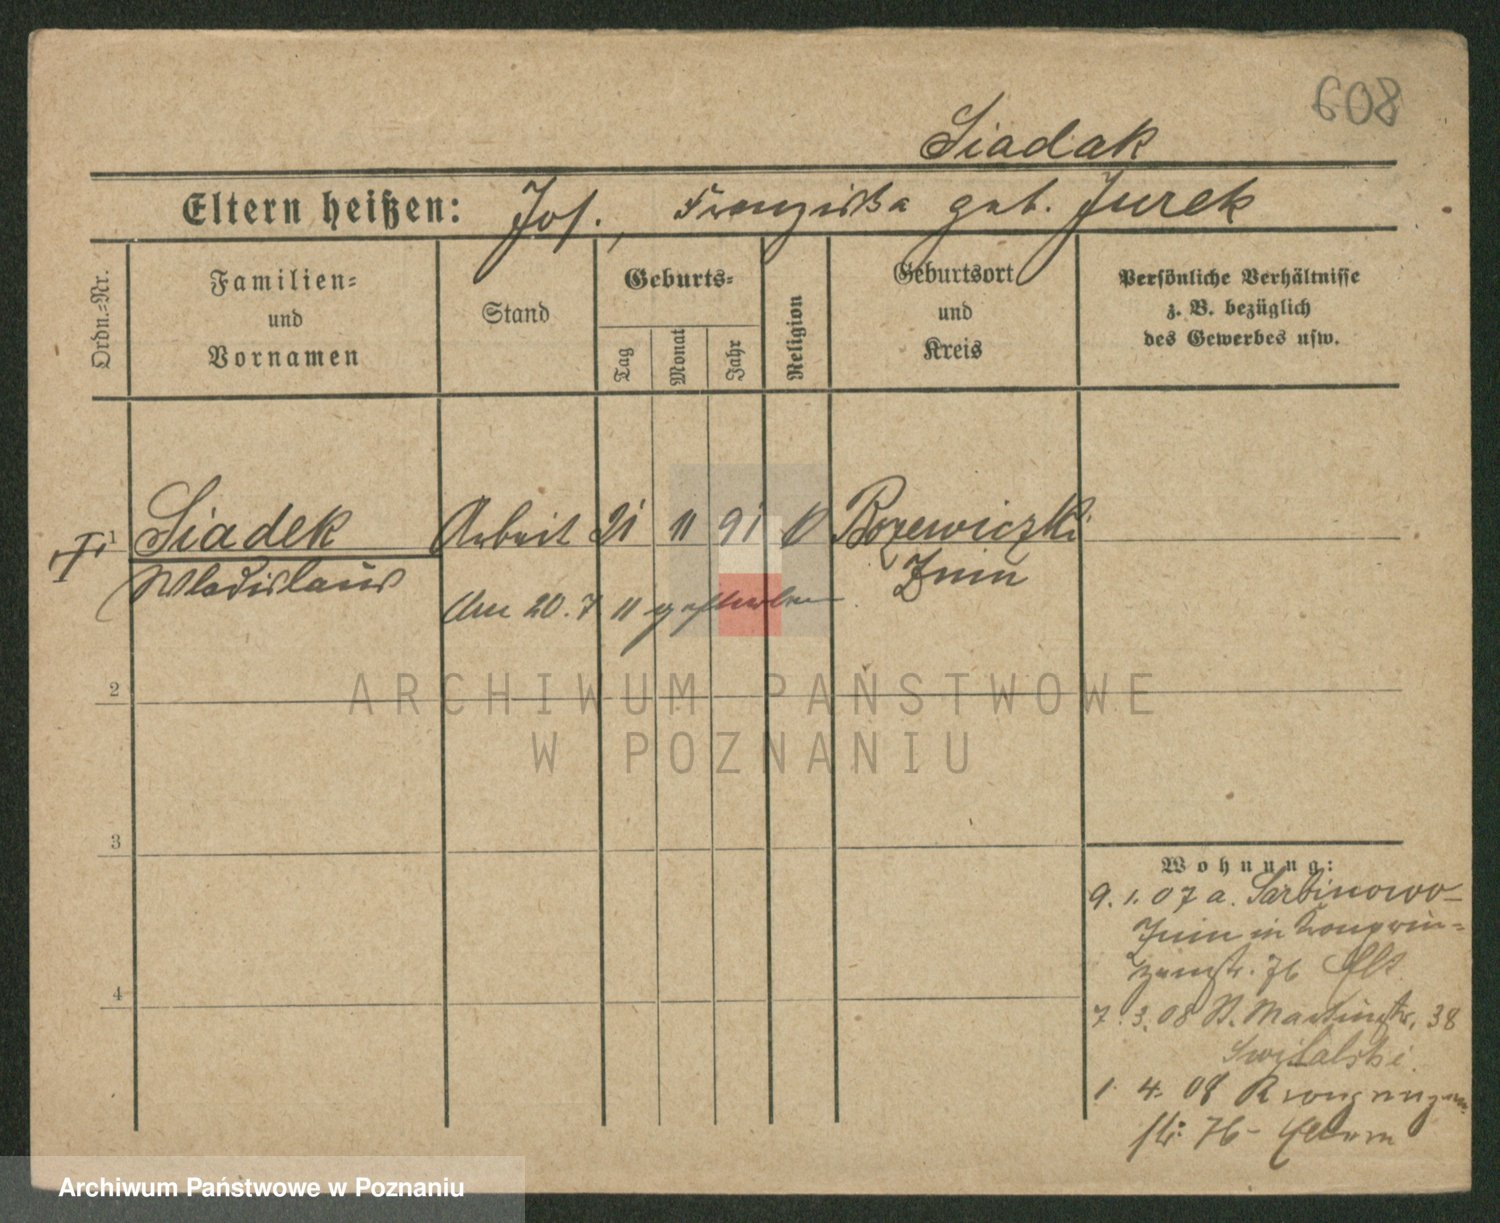 608
Siadak
Eltern heißen: Jos., Franziska geb. Jurek
Ordn.=Nr.
Familien=
und
Vornamen
Stand
Geburts=
Tag
Monat
Jahr
Religion
Geburtsort
und
Kreis
Persönliche Verhältnisse
z. B. bezüglich
des Gewerbes usw.
1 Siadek Arbeit 21 11 91 Bozewiczki
Wladislaus Znin
Am 20. 7 11 gestorben
2
ARCHIWUM PAŃSTWOWE
W POZNANIU
3
4
Wohnung:
9. 1. 07 a. Sarbinowo-
Znin in Kronprin=
zenstr. 76
7. 3. 08 St. Martinstr. 38
Switalski.
1. 4. 08 Kronprinzen
str. 76 - Eltern
Archiwum Państwowe w Poznaniu